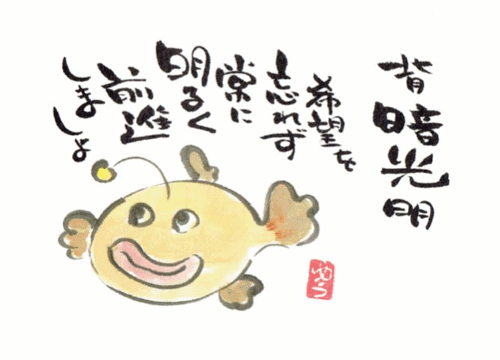 背暗光明
希望を
忘れず
常に
明るく
前進
しましょ